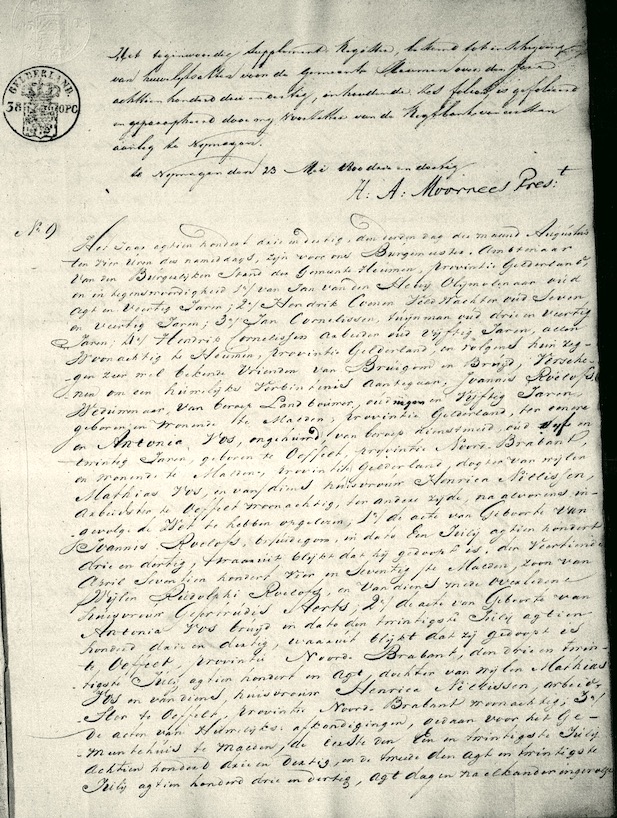 GELDERLAND
38 OPC
Het tegenwoordig Supplement Register, bestemd tot inschrijving
van huwelijksakten voor de Gemeente Heumen over den Jare
achttien honderd drie en dertig, inhoudende het folio is gefolieerd
en geparapheerd door my Voorzitter van de Regtbank van eersten
aanleg te Nijmegen.
te Nijmegen den 23 Mei drie en dertig
H: A: Moorrees Prest:
No 9
Het Jaar agtien hondert drie en dertig, den derden dag der maand Augustus
ten vier Uren des namiddags, zijn voor ons Burgemeester Ambtenaar
van den Burgerlijken Stand der Gemeente Heumen, provintie Gelderland,
en in tegenswoordigheid 1o/ van Jan van den Heuij Olijmolenaar oud
Agt en Veertig Jaren; 2o/ Hendrik Coenen Veldwachter oud Seven
en veertig Jaren; 3o/ Jan Cornelissen, tuijnman oud drie en veertig
Jaren; 4o/ Hendrik Cornelissen Arbeider oud Vijftig Jaren, allen
Woonachtig te Heumen, provintie Gelderland, en volgens hun zeg-
gen zeer wel bekende Vrienden van Bruijgom en Bruijd, Versche-
nen om een huwelijks Verbintenis Aantegaan, Joannis Roelofs
Weduwnaar, van beroep Landbouwer, oud negen en Vijftig Jaren,
geboren en Wonende te Malden, provintie Gelderland, ter eenre
en Antonia Vos, ongehuwd, van beroep dienstmeid, oud vijf en
twintig Jaren, geboren te Oeffelt, provintie Noord-Brabant
en wonende te Malden, provintie Gelderland, dogter van wijlen
Mathias Vos, en van diens huisvrouw Henrica Nillissen,
Arbeidster te Oeffelt woonachtig, ter andere zijde, na alvorens in-
gevolge de Wet te hebben overgelezen, 1o/ de acte van Geboorte van
Joannis Roelofs, bruidegom, in dato Een Julij agtien hondert
drie en dertig, waaruit blijkt dat hij gedoopt is, den Veertiende
April Seventien hondert Vier en Seventig te Malden, zoon van
Wijlen Rudolphi Roelofs, en Van diens mede overledene
huisvrouw Gepruidis Aerts; 2o/ de acte van Geboorte van
Antonia Vos bruijd in dato den twintigste Julij agtien
honderd drie en dertig, waaruit blijkt dat zij gedoopt is
te Oeffelt, provintie Noord Brabant, den drie en twin-
tigste Julij agtien hondert en agt dochter van wijlen Mathias
Vos en van diens, huisvrouw Henrica Nillissen, arbeid-
ster te Oeffelt, provintie Noord Brabant woonachtig; 3o/
de acten van Huwelijks afkondigingen, gedaan voor het Ge-
meentehuis te Malden, de eerste den Een en twintigste Julij
Achtien honderd drie en dertig, en de tweede den agt en twintigste
Julij agtien honderd drie en dertig, agt dagen na elkander ingevolge